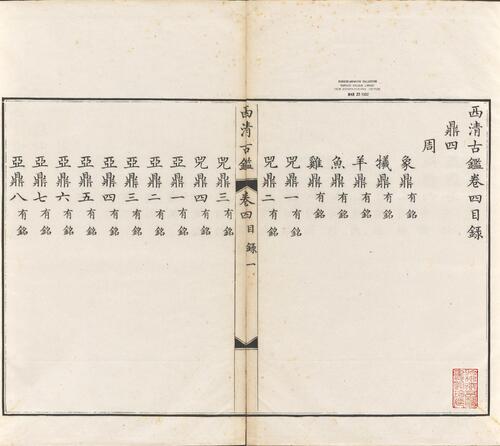 西清古鑑卷四目錄
鼎四
周
象鼎 有銘
犧鼎 有銘
羊鼎 有銘
魚鼎 有銘
雞鼎 有銘
兕鼎一 有銘
兕鼎二 有銘
西清古鑑 卷四目錄 一
兕鼎三 有銘
兕鼎四 有銘
亞鼎一 有銘
亞鼎二 有銘
亞鼎三 有銘
亞鼎四 有銘
亞鼎五 有銘
亞鼎六 有銘
亞鼎七 有銘
亞鼎八 有銘